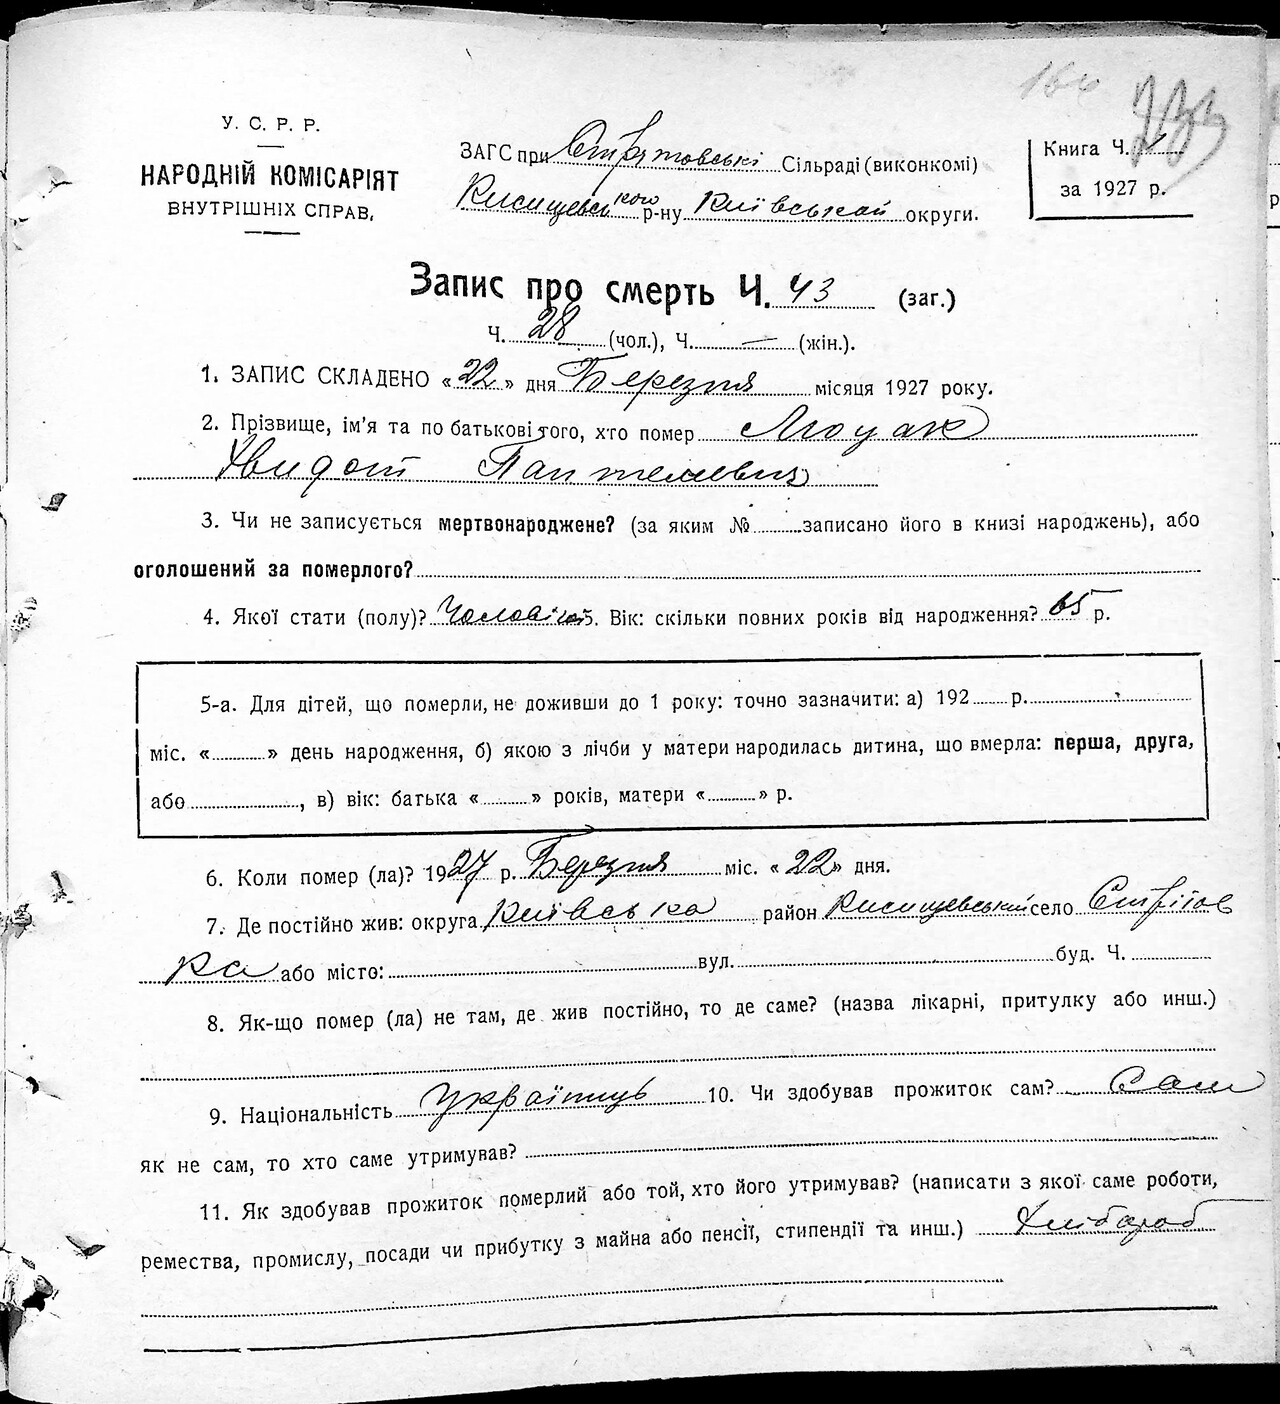 166
233
У. С. Р. Р.
НАРОДНІЙ КОМІСАРІЯТ
ВНУТРІШНІХ СПРАВ,
ЗАГС при Сільраді (виконкомі)
р-ну Київської округи.
Книга Ч.
за 1927 р.
Запис про смерть Ч. 43 (заг.)
Ч. 28 (чол.), Ч. — (жін.).
1. ЗАПИС СКЛАДЕНО «22» дня Березня місяця 1927 року.
2. Прізвище, ім'я та по батькові того, хто помер
3. Чи не записується мертвонароджене? (за яким № записано його в книзі народжень), або
оголошений за померлого?
4. Якої стати (полу)? 5. Вік: скільки повних років від народження? 65 р.
5-а. Для дітей, що померли, не доживши до 1 року: точно зазначити: а) 192 р.
міс. « » день народження, б) якою з лічби у матери народилась дитина, що вмерла: перша, друга,
або , в) вік: батька « » років, матери « » р.
6. Коли помер (ла)? 1927 р. Березня міс. «22» дня.
7. Де постійно жив: округа Київська район село
або місто: вул. буд. Ч.
8. Як-що помер (ла) не там, де жив постійно, то де саме? (назва лікарні, притулку або инш.)
9. Національність Українець 10. Чи здобував прожиток сам? Сам
як не сам, то хто саме утримував?
11. Як здобував прожиток померлий або той, хто його утримував? (написати з якої саме роботи,
ремества, промислу, посади чи прибутку з майна або пенсії, стипендії та инш.) Хлібороб